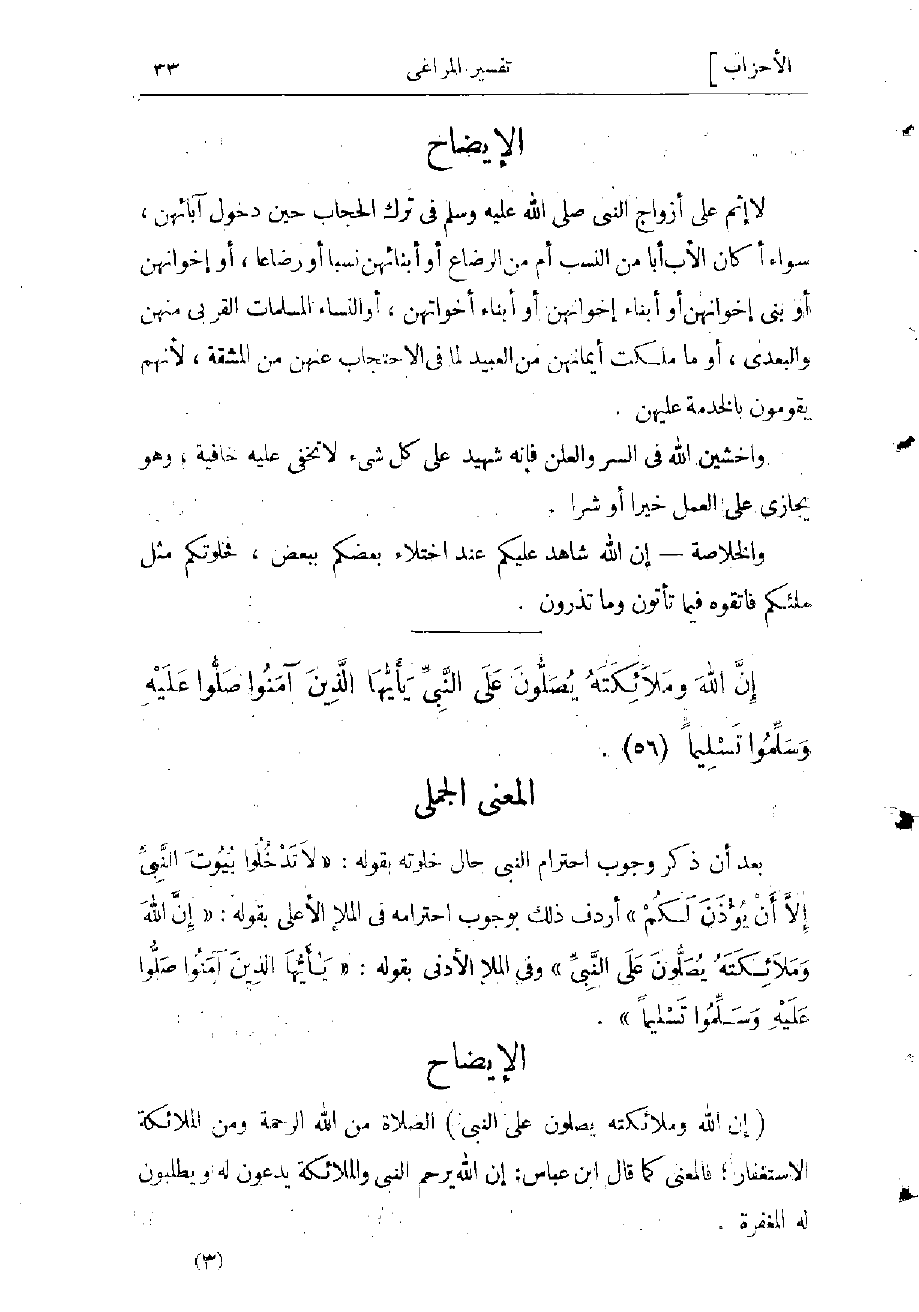 الأحزاب ] تفسير المراغى ٣٣
الإيضاح
لا إثم على أزواج النبى صلى الله عليه وسلم فى ترك الحجاب حين دخول آبائهن ،
سواء أكان الأب أبا من النسب أم من الرضاع أو أبنائهن نسبا أو رضاعا ، أو إخوانهن
أو بنى إخوانهن أو أبناء إخوانهن أو أبناء أخواتهن ، أو النساء المسلمات القربى منهن
والبعدى ، أو ما ملكت أيمانهن من العبيد لما فى الاحتجاب عنهن من المشقة ، لأنهم
يقومون بالخدمة عليهن .
واخشين الله فى السر والعلن فإنه شهيد على كل شىء لا تخفى عليه خافية ، وهو
يجازى على العمل خيرا أو شرا .
والخلاصة — إن الله شاهد عليكم عند اختلاء بعضكم ببعض ، فخلوتكم مثل
ملئكم فاتقوه فيما تأتون وما تذرون .
إِنَّ اللهَ وَمَلَائِكَتَهُ يُصَلُّونَ عَلَى النَّبِىِّ يَأَيُّهَا الَّذِينَ آمَنُوا صَلُّوا عَلَيْهِ
وَسَلِّمُوا تَسْلِيماً (٥٦) .
المعنى الجملى
بعد أن ذكر وجوب احترام النبى حال خلوته بقوله : « لَا تَدْخُلُوا بُيُوتَ النَّبِىِّ
إِلَّا أَنْ يُؤْذَنَ لَكُمْ » أردف ذلك بوجوب احترامه فى الملإ الأعلى بقوله : « إِنَّ اللهَ
وَمَلَائِكَتَهُ يُصَلُّونَ عَلَى النَّبِىِّ » وفى الملإ الأدنى بقوله : « يَأَيُّهَا الذِينَ آمَنُوا صَلُّوا
عَلَيْهِ وَسَلِّمُوا تَسْلِيماً » .
الإيضاح
( إن الله وملائكته يصلون على النبى ) الصلاة من الله الرحمة ومن الملائكة
الاستغفار ؛ فالمعنى كما قال ابن عباس : إن الله يرحم النبى والملائكة يدعون له ويطلبون
له المغفرة .
(٣)